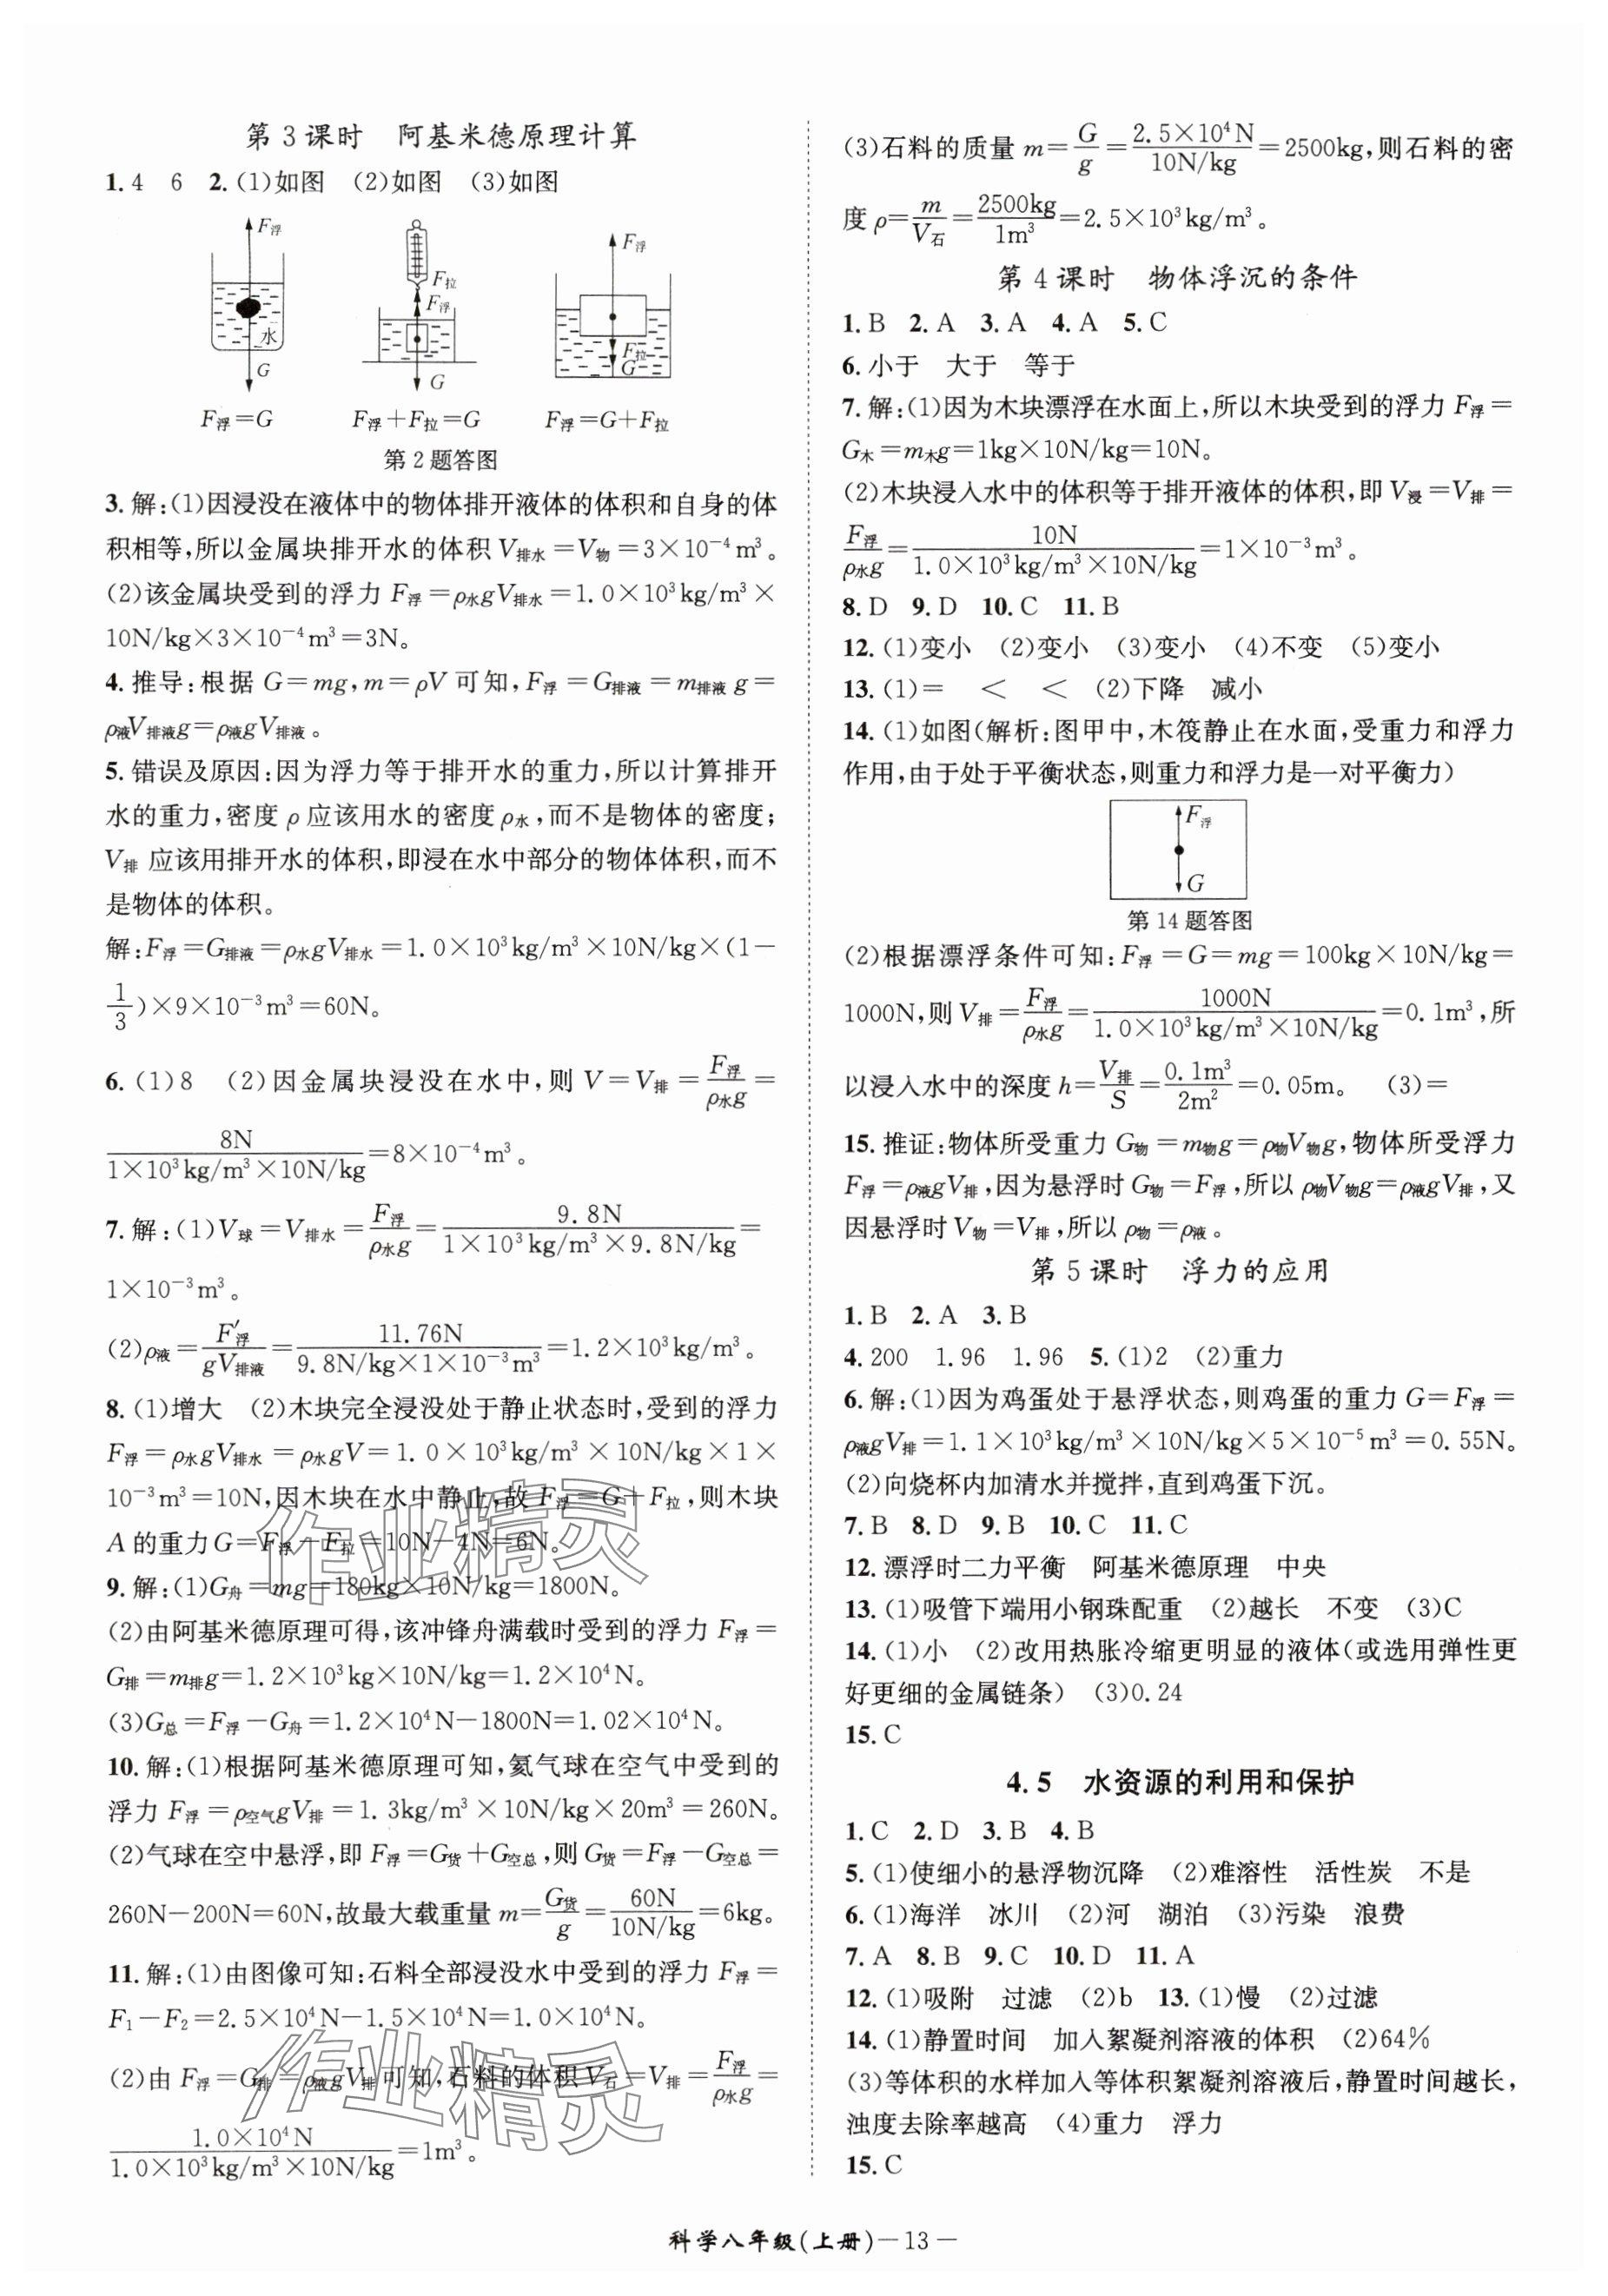 第3课时　阿基米德原理计算
1.4　6　2.(1)如图　(2)如图　(3)如图
F浮　水　G
F拉　F浮　G
F浮　F拉　G
F浮=G　F浮+F拉=G　F浮=G+F拉
第2题答图
3.解:(1)因浸没在液体中的物体排开液体的体积和自身的体
积相等,所以金属块排开水的体积V排水=V物=3×10⁻⁴m³。
(2)该金属块受到的浮力F浮=ρ水gV排水=1.0×10³kg/m³×
10N/kg×3×10⁻⁴m³=3N。
4.推导:根据G=mg,m=ρV可知,F浮=G排液=m排液g=
ρ液V排液g=ρ液gV排液。
5.错误及原因:因为浮力等于排开水的重力,所以计算排开
水的重力,密度ρ应该用水的密度ρ水,而不是物体的密度;
V排应该用排开水的体积,即浸在水中部分的物体体积,而不
是物体的体积。
解:F浮=G排液=ρ水gV排水=1.0×10³kg/m³×10N/kg×(1-
1/3)×9×10⁻³m³=60N。
6.(1)8　(2)因金属块浸没在水中,则V=V排=F浮/ρ水g=
8N/1×10³kg/m³×10N/kg=8×10⁻⁴m³。
7.解:(1)V球=V排水=F浮/ρ水g=9.8N/1×10³kg/m³×9.8N/kg=
1×10⁻³m³。
(2)ρ液=F′浮/gV排液=11.76N/9.8N/kg×1×10⁻³m³=1.2×10³kg/m³。
8.(1)增大　(2)木块完全浸没处于静止状态时,受到的浮力
F浮=ρ水gV排水=ρ水gV=1.0×10³kg/m³×10N/kg×1×
10⁻³m³=10N,因木块在水中静止,故F浮=G+F拉,则木块
A的重力G=F浮-F拉=10N-4N=6N。
9.解:(1)G舟=mg=180kg×10N/kg=1800N。
(2)由阿基米德原理可得,该冲锋舟满载时受到的浮力F浮=
G排=m排g=1.2×10³kg×10N/kg=1.2×10⁴N。
(3)G总=F浮-G舟=1.2×10⁴N-1800N=1.02×10⁴N。
10.解:(1)根据阿基米德原理可知,氦气球在空气中受到的
浮力F浮=ρ空气gV排=1.3kg/m³×10N/kg×20m³=260N。
(2)气球在空中悬浮,即F浮=G货+G空总,则G货=F浮-G空总=
260N-200N=60N,故最大载重量m=G货/g=60N/10N/kg=6kg。
11.解:(1)由图像可知:石料全部浸没水中受到的浮力F浮=
F₁-F₂=2.5×10⁴N-1.5×10⁴N=1.0×10⁴N。
(2)由F浮=G排=ρ液gV排可知,石料的体积V石=V排=F浮/ρ水g=
1.0×10⁴N/1.0×10³kg/m³×10N/kg=1m³。
(3)石料的质量m=G/g=2.5×10⁴N/10N/kg=2500kg,则石料的密
度ρ=m/V石=2500kg/1m³=2.5×10³kg/m³。
第4课时　物体浮沉的条件
1.B　2.A　3.A　4.A　5.C
6.小于　大于　等于
7.解:(1)因为木块漂浮在水面上,所以木块受到的浮力F浮=
G木=m木g=1kg×10N/kg=10N。
(2)木块浸入水中的体积等于排开液体的体积,即V浸=V排=
F浮/ρ水g=10N/1.0×10³kg/m³×10N/kg=1×10⁻³m³。
8.D　9.D　10.C　11.B
12.(1)变小　(2)变小　(3)变小　(4)不变　(5)变小
13.(1)=　<　<　(2)下降　减小
14.(1)如图(解析:图甲中,木筏静止在水面,受重力和浮力
作用,由于处于平衡状态,则重力和浮力是一对平衡力)
F浮
G
第14题答图
(2)根据漂浮条件可知:F浮=G=mg=100kg×10N/kg=
1000N,则V排=F浮/ρ水g=1000N/1.0×10³kg/m³×10N/kg=0.1m³,所
以浸入水中的深度h=V排/S=0.1m³/2m²=0.05m。　(3)=
15.推证:物体所受重力G物=m物g=ρ物V物g,物体所受浮力
F浮=ρ液gV排,因为悬浮时G物=F浮,所以ρ物V物g=ρ液gV排,又
因悬浮时V物=V排,所以ρ物=ρ液。
第5课时　浮力的应用
1.B　2.A　3.B
4.200　1.96　1.96　5.(1)2　(2)重力
6.解:(1)因为鸡蛋处于悬浮状态,则鸡蛋的重力G=F浮=
ρ液gV排=1.1×10³kg/m³×10N/kg×5×10⁻⁵m³=0.55N。
(2)向烧杯内加清水并搅拌,直到鸡蛋下沉。
7.B　8.D　9.B　10.C　11.C
12.漂浮时二力平衡　阿基米德原理　中央
13.(1)吸管下端用小钢珠配重　(2)越长　不变　(3)C
14.(1)小　(2)改用热胀冷缩更明显的液体(或选用弹性更
好更细的金属链条)　(3)0.24
15.C
4.5　水资源的利用和保护
1.C　2.D　3.B　4.B
5.(1)使细小的悬浮物沉降　(2)难溶性　活性炭　不是
6.(1)海洋　冰川　(2)河　湖泊　(3)污染　浪费
7.A　8.B　9.C　10.D　11.A
12.(1)吸附　过滤　(2)b　13.(1)慢　(2)过滤
14.(1)静置时间　加入絮凝剂溶液的体积　(2)64%
(3)等体积的水样加入等体积絮凝剂溶液后,静置时间越长,
浊度去除率越高　(4)重力　浮力
15.C
作业精灵
作业精灵
科学八年级(上册)—13—